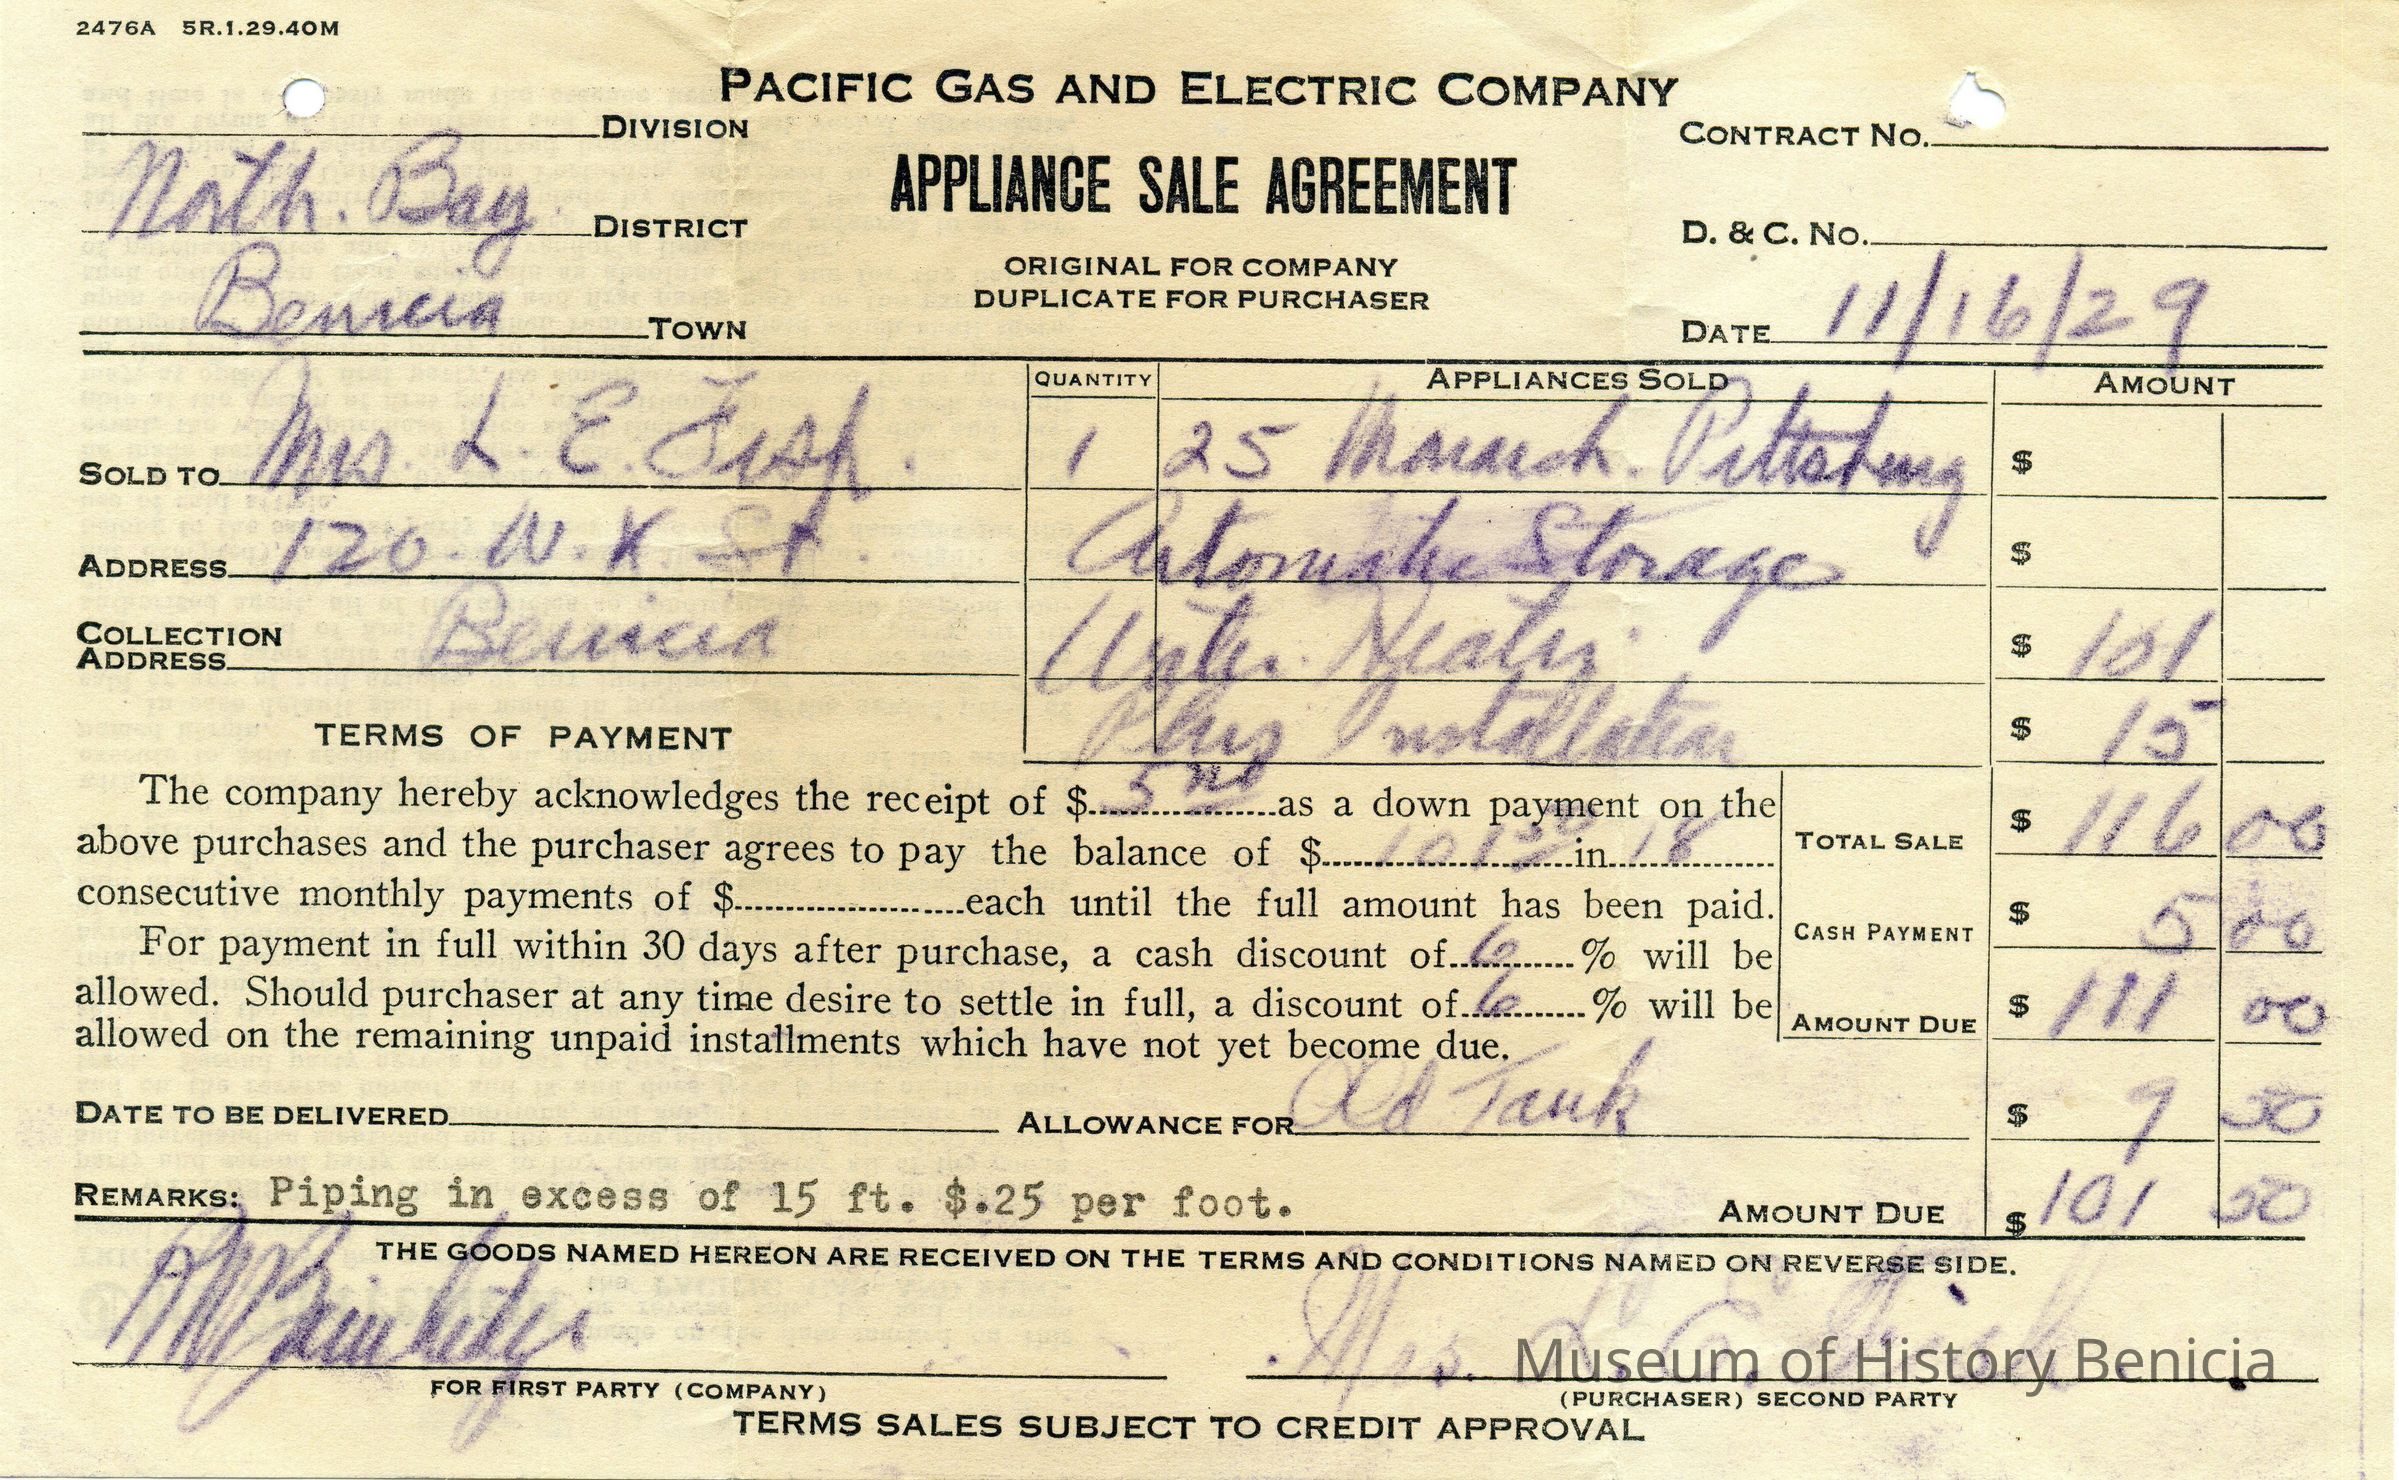 2476A 5R.1.29.40M
PACIFIC GAS AND ELECTRIC COMPANY
DIVISION
CONTRACT No.
APPLIANCE SALE AGREEMENT
North. Bay DISTRICT
D. & C. No.
ORIGINAL FOR COMPANY
DUPLICATE FOR PURCHASER
Benicia TOWN
DATE 11/16/29
QUANTITY APPLIANCES SOLD AMOUNT
SOLD TO Mrs. L. E. Fish. 1 25 Monarch. Pittsburg $
ADDRESS 120. W. K St. Automatic Storage $
COLLECTION ADDRESS Benicia Water. Heater. $ 101
Plus Installation $ 15
TERMS OF PAYMENT
The company hereby acknowledges the receipt of $ 5 as a down payment on the
above purchases and the purchaser agrees to pay the balance of $ 101 50 in 18
TOTAL SALE $ 116 00
consecutive monthly payments of $ each until the full amount has been paid.
CASH PAYMENT $ 5 00
For payment in full within 30 days after purchase, a cash discount of 6 % will be
allowed. Should purchaser at any time desire to settle in full, a discount of 6 % will be
AMOUNT DUE $ 111 00
allowed on the remaining unpaid installments which have not yet become due.
DATE TO BE DELIVERED ALLOWANCE FOR Old Tank $ 9 50
REMARKS: Piping in excess of 15 ft. $.25 per foot. AMOUNT DUE $ 101 50
THE GOODS NAMED HEREON ARE RECEIVED ON THE TERMS AND CONDITIONS NAMED ON REVERSE SIDE.
Mrs. L. E. Fish
Museum of History Benicia
FOR FIRST PARTY (COMPANY) (PURCHASER) SECOND PARTY
TERMS SALES SUBJECT TO CREDIT APPROVAL